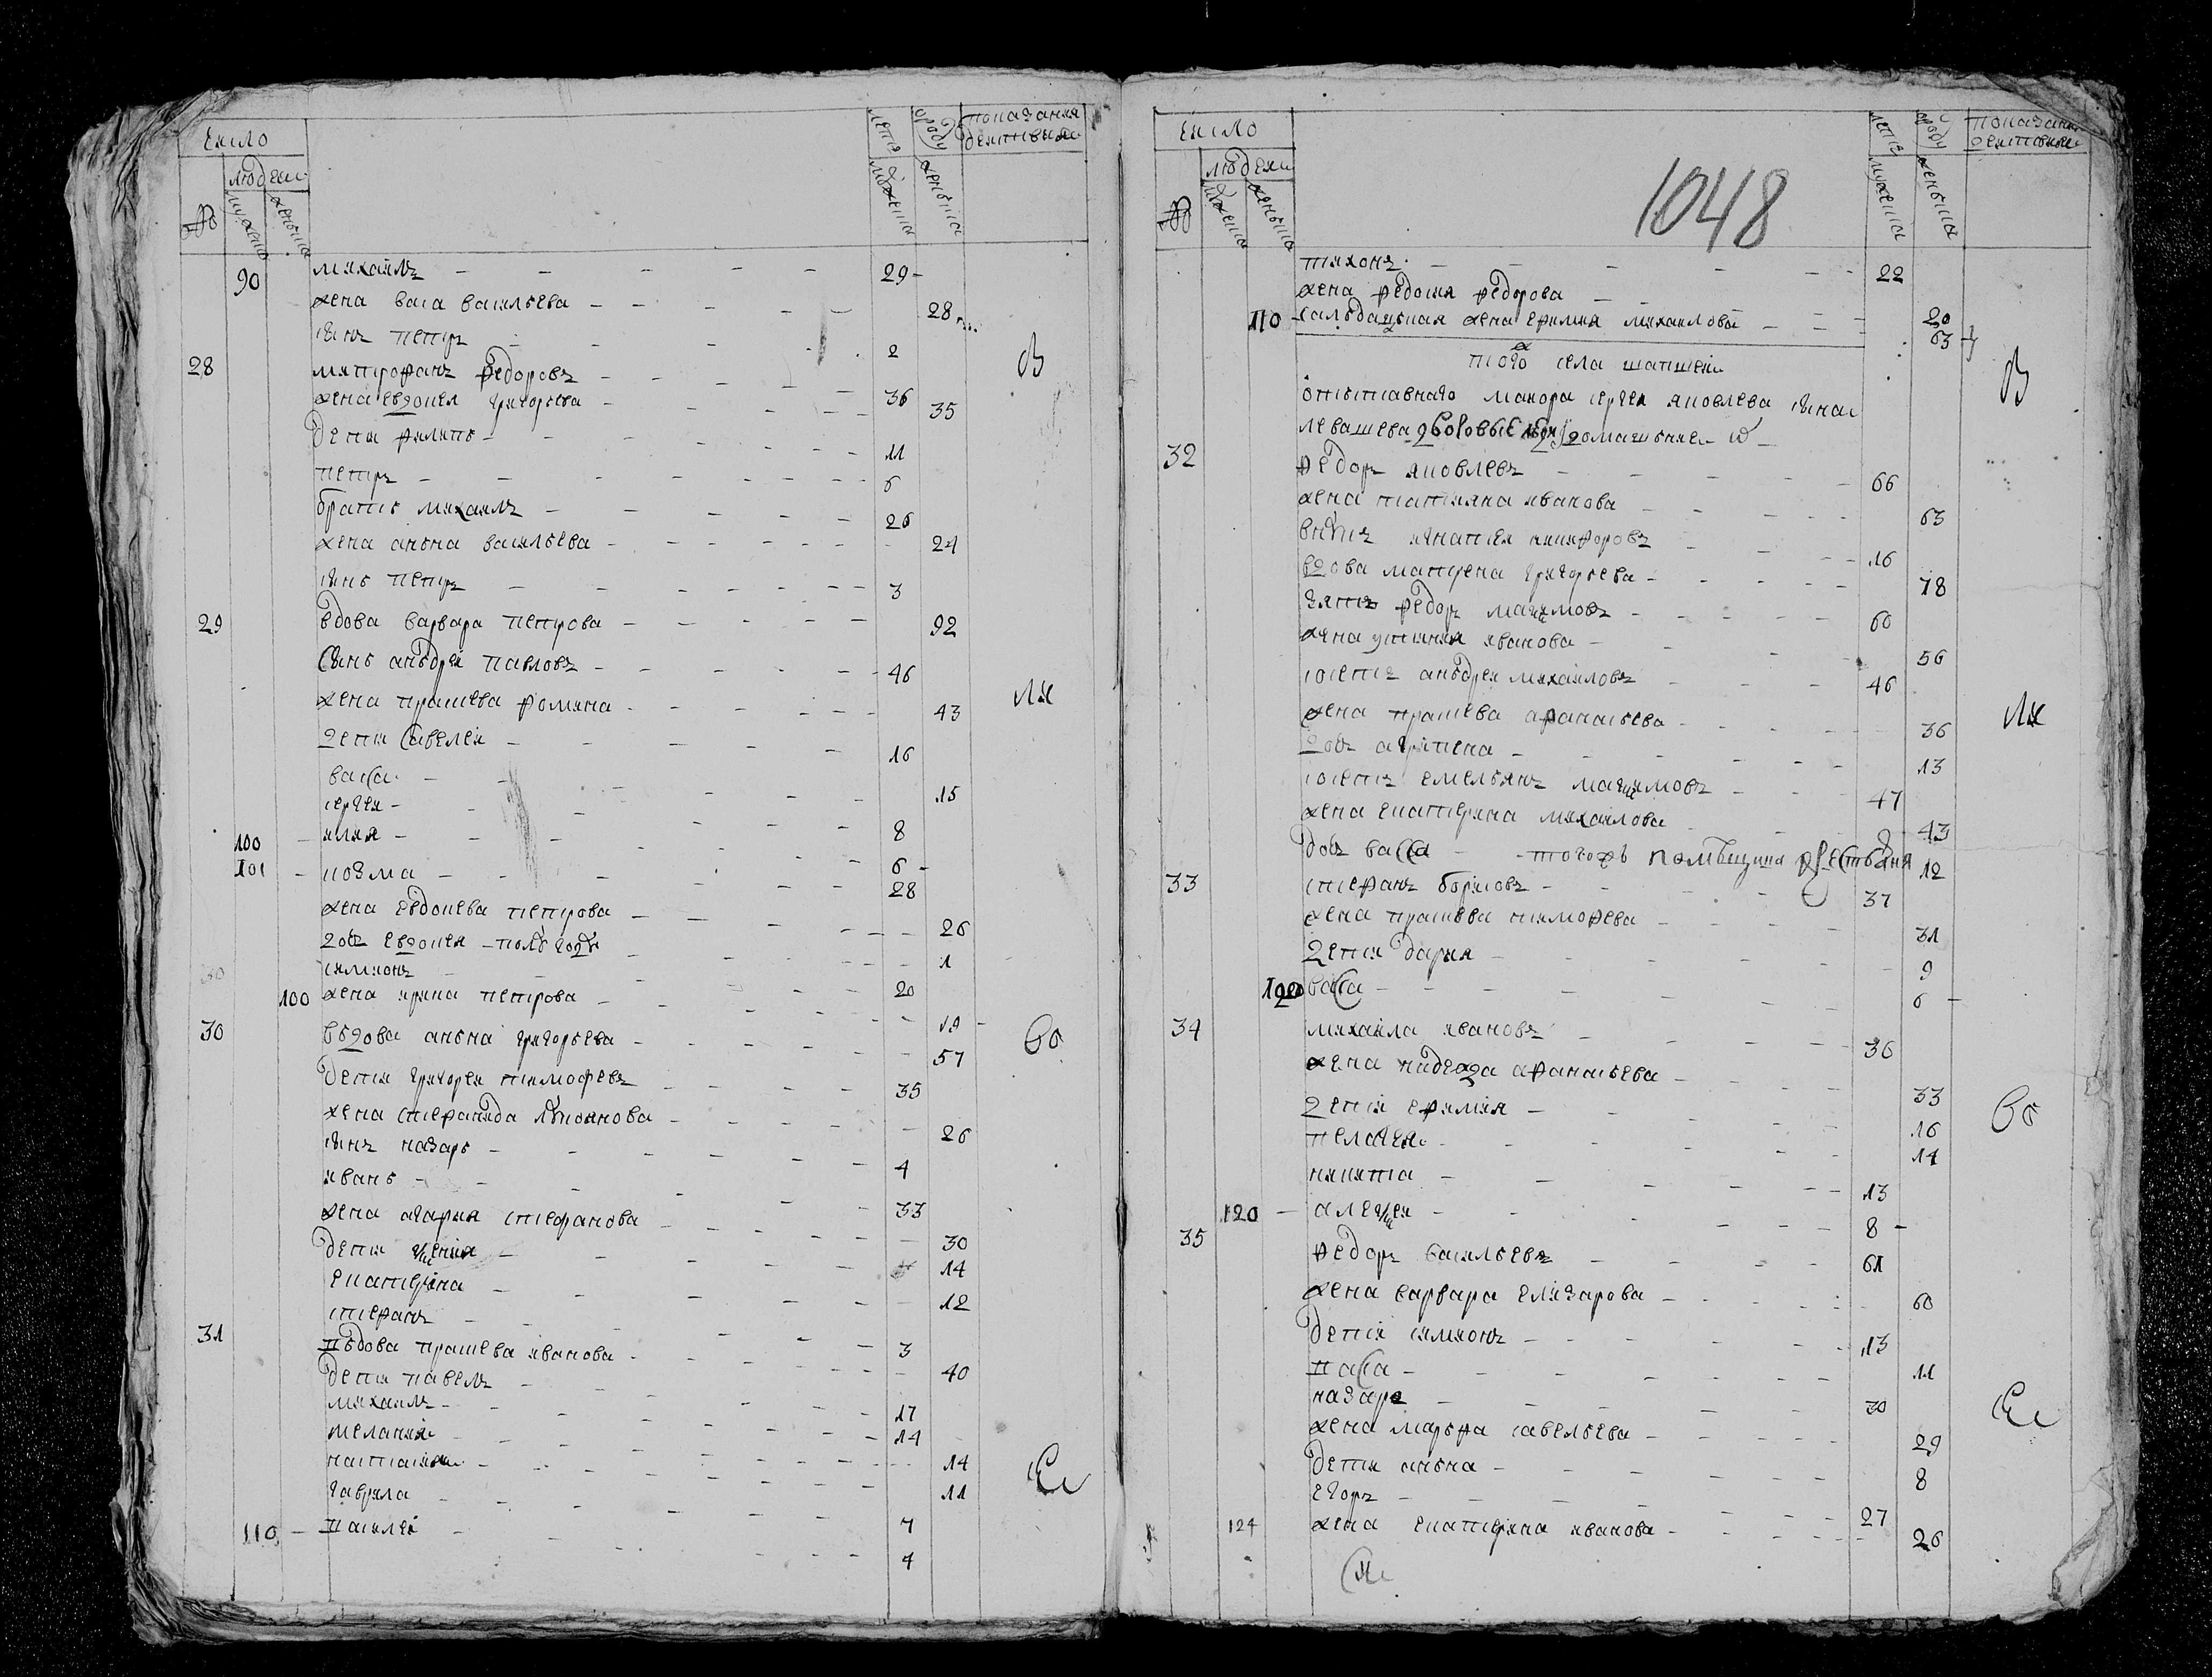 Число
людеи
№
мужеска
женьска
лета
мужеска
ороду
женьска
показания
деиствия
90 михаилъ 29
жена васа васильева 28
сынъ петръ 2
28 митрофанъ федоровъ 36
жена евдокея григорьева 35
дети филипъ 11
петръ 6
братъ михаилъ 26
жена аньна васильева 24
сынъ петръ 3
29 вдова варвара петрова 92
сынъ аньдреи павловъ 46
жена прасковя фомина 43
дети савелеи 16
васса 15
сергеи 8
100 илия 6
101 козма 28
жена евдокея петрова 26
дочь евдокея полъ года 1
симионъ 20
100 жена ирина петрова 19
30 вьдова аньна григорьева 57
дети григореи тимофеевъ 35
жена стефанида лукиянова 26
сынъ назаръ 4
иванъ 33
жена агафия стефанова 30
дети ксения 14
екатерина 12
стефанъ 3
31 вьдова прасковя иванова 40
дети павелъ 17
михаилъ 14
мелания 14
настасия 11
гаврила 7
110 василеи 4
ов
ли
во
си
Число
людеи
№
мужеска
женьска
лета
мужеска
ороду
женьска
показания
деиствия
1048
тихонъ 22
жена федосия федорова 20
110 салдацькая жена ефимия михаилова 63
тогож села шапшеи
отьставнаго маиора сергея яковлева сына
левашева дворовые люди домашьние
32 федоръ яковлевъ 66
жена татияна иванова 63
внукъ игнатеи никифоровъ 16
вдова матрена григорьева 78
зять федоръ максимовъ 60
жена устиния иванова 56
аньдреи михаиловъ 46
жена прасковя афанасьева 36
дочь агрипена 13
емельянъ максимовъ 47
жена екатерина михаилова 43
дочь васса 12
тогожъ помещика крестьяня
33 стефанъ борисовъ 37
жена прасковя тимофеева 31
дети дария 9
120 васса 6
34 михаила ивановъ 36
жена надежда афанасьева 33
дети ефимия 16
пелагея 14
никита 13
120 алексеи 8
35 федоръ васильевъ 61
жена варвара елизарова 60
дети симионъ 13
васса 11
назаръ 30
жена марьфа савельева 29
дети аньна 8
егоръ 27
124 жена екатерина иванова 26
ов
ли
во
си